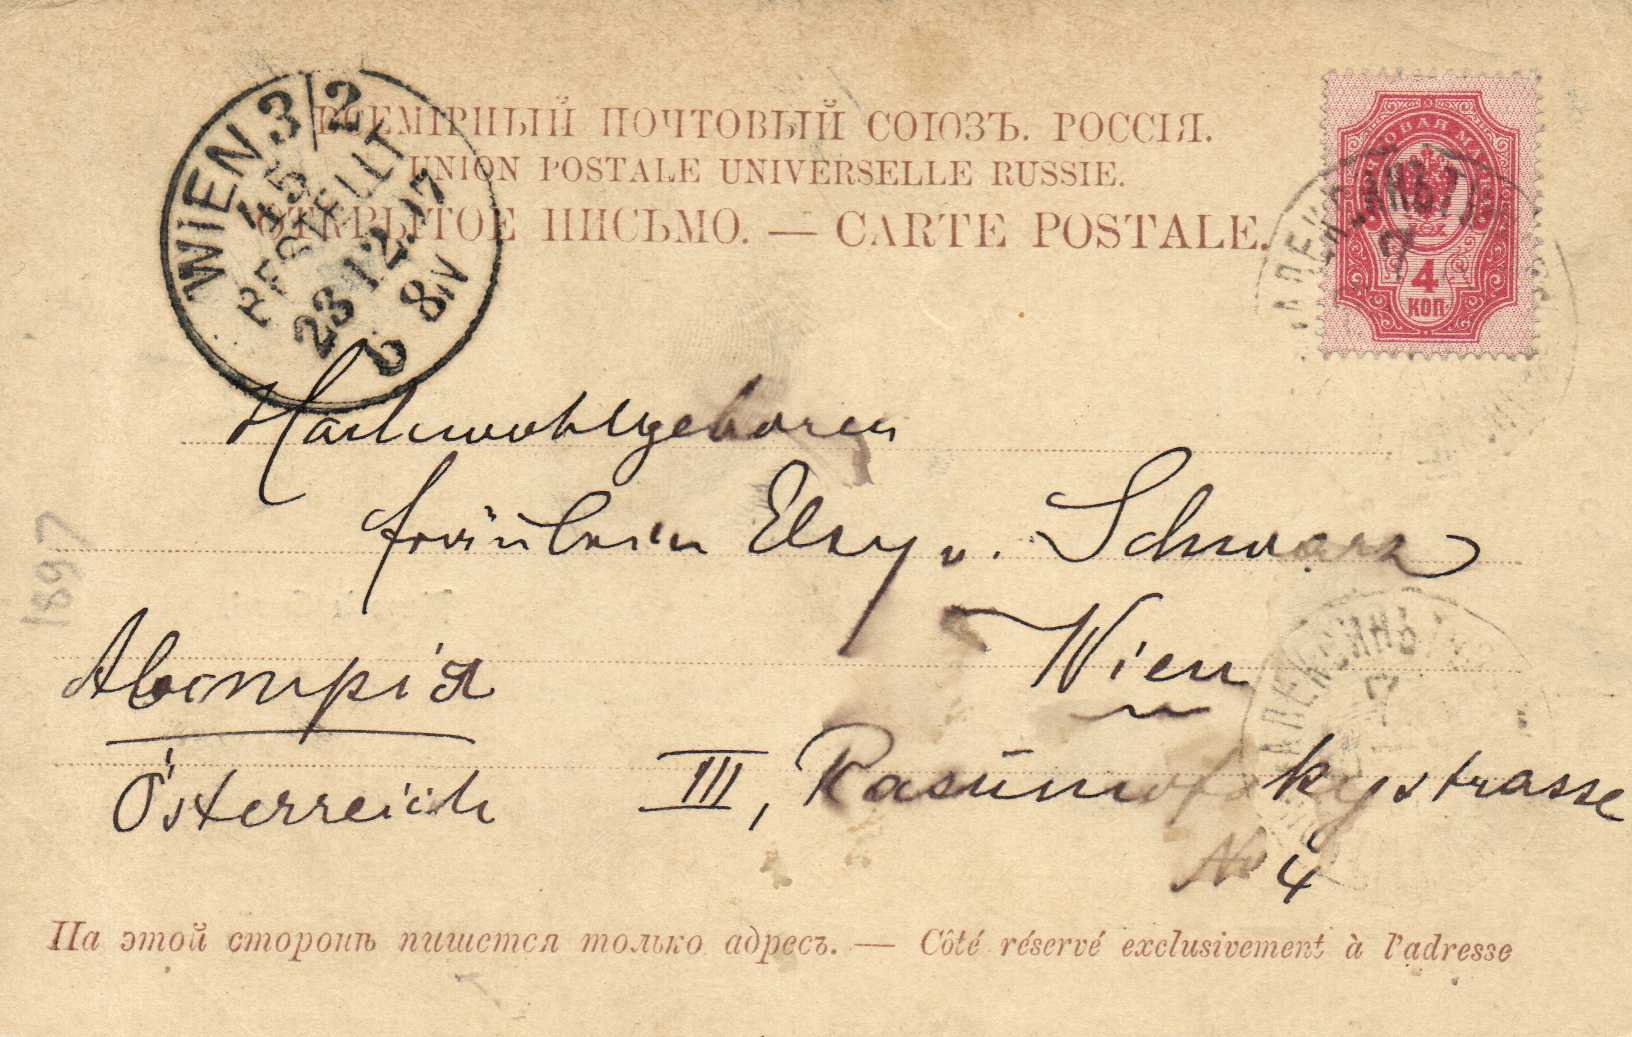 ВСЕМІРНЫЙ ПОЧТОВЫЙ СОЮЗЪ. РОССІЯ.
UNION POSTALE UNIVERSELLE RUSSIE.
ОТКРЫТОЕ ПИСЬМО. — CARTE POSTALE.
WIEN 3/2
45
BESTELLT
23.12.97
8 N
ПОЧТОВАЯ МАРКА
4
КОП
Hochwohlgeboren
Fräulein Elsy v. Schwarz
Wien
Австрія
Österreich
III, Rasumofskystrasse
No 4
1897
На этой сторонѣ пишется только адресъ. — Côté réservé exclusivement à l'adresse